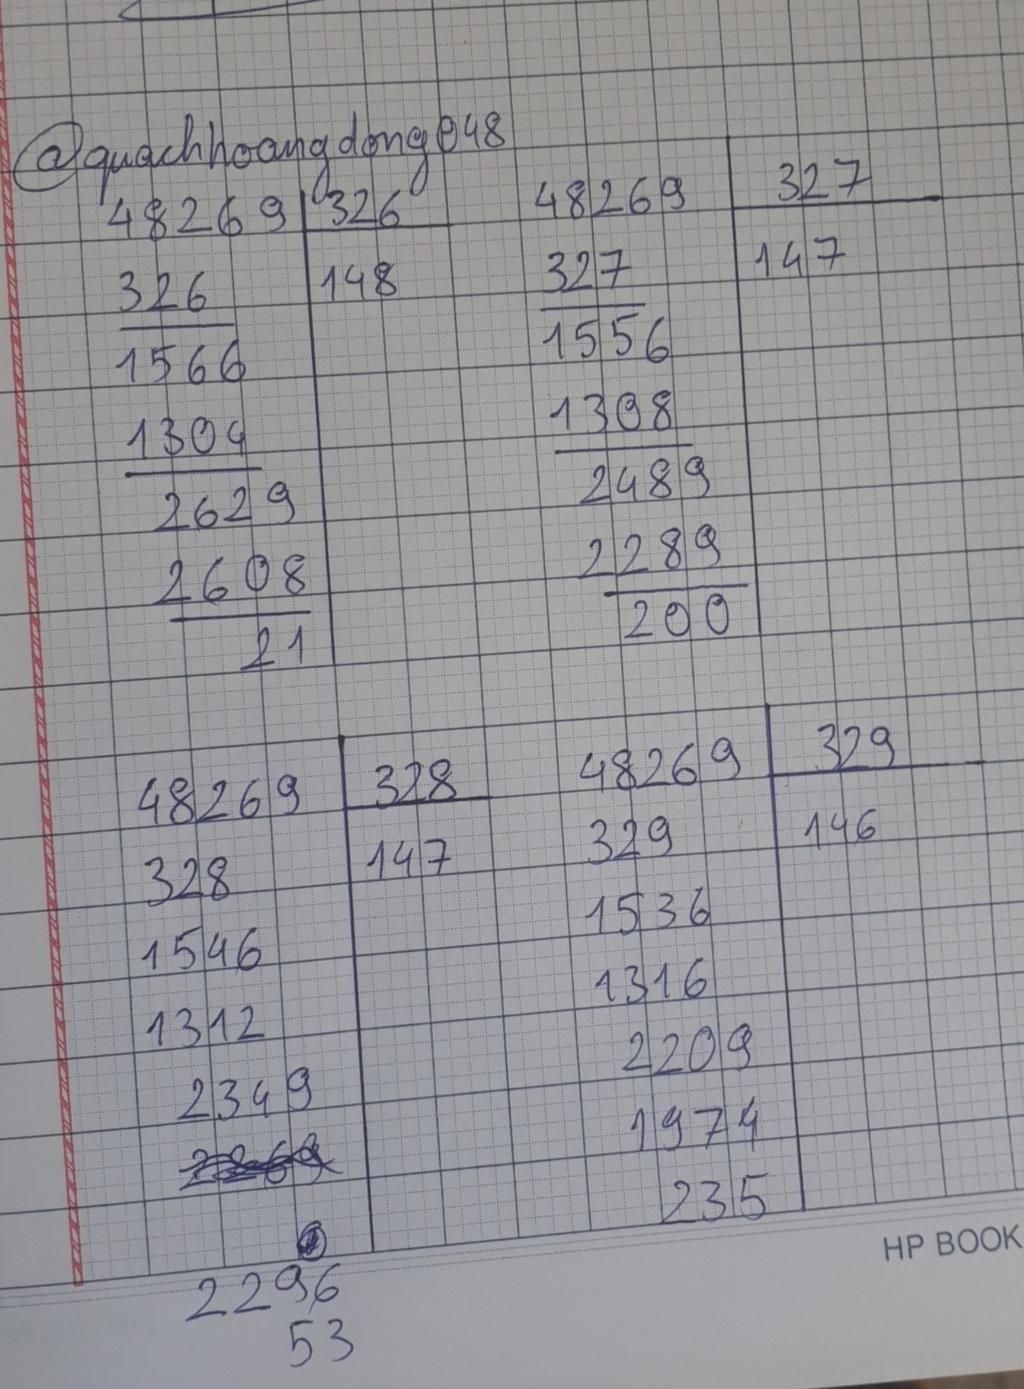 @quachhoangdong048
48269 326
326 148
1566
1304
2629
2608
21
48269 327
327 147
1556
1308
2489
2289
200
48269 328
328 147
1546
1312
2349
2296
53
48269 329
329 146
1536
1316
2209
1974
235
HP BOOK